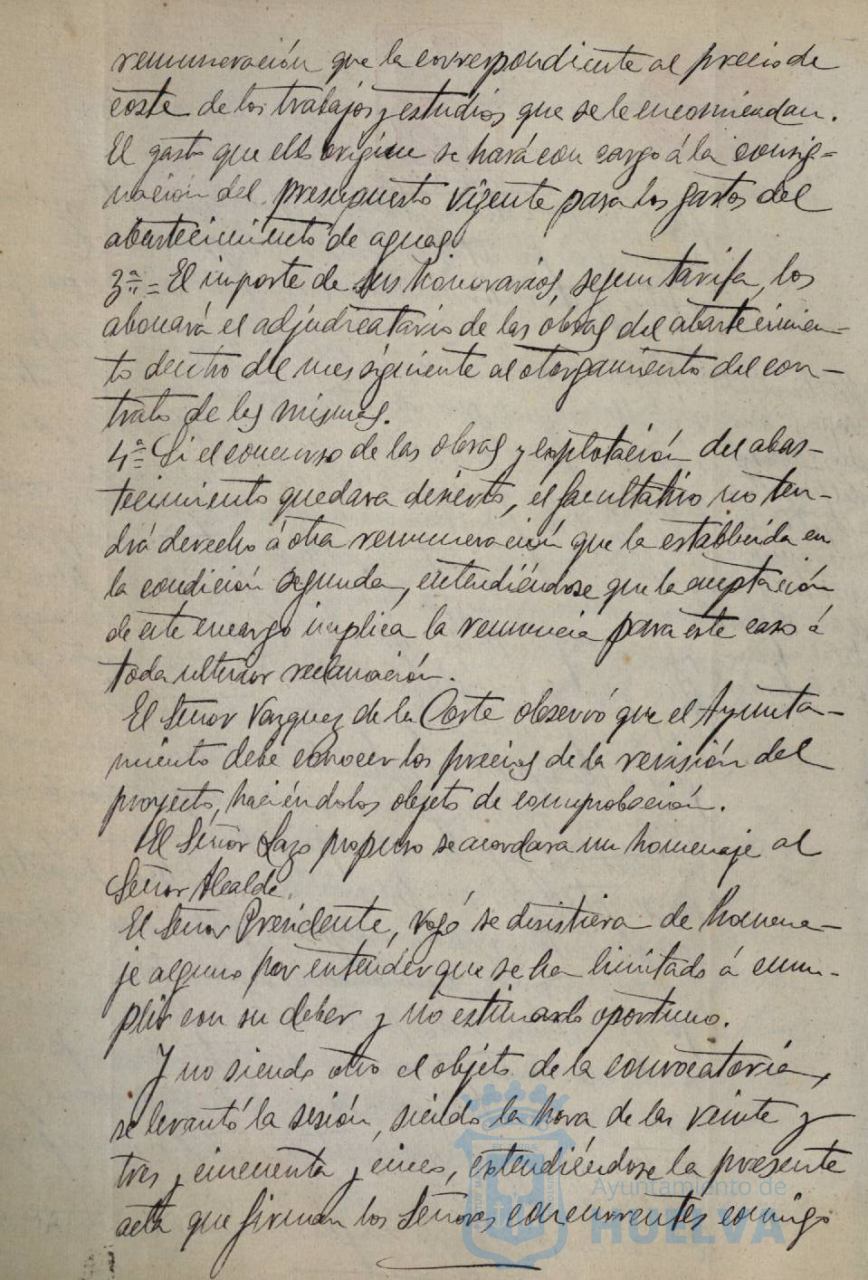 remuneración que la correspondiente al precio de
coste de los trabajos y estudios que se le encomiendan.
El gasto que ello origine se hará con cargo á la consig-
nación del presupuesto vigente para los gastos del
abastecimiento de aguas.
3ª = El importe de sus honorarios, segun tarifa, los
abonará el adjudicatario de las obras del abastecimien-
to dentro del mes siguiente al otorgamiento del con-
trato de las mismas.
4ª = Si el concurso de las obras y explotación del abas-
tecimiento quedara desierto, el facultativo no ten-
drá derecho á otra remuneración que la establecida en
la condición segunda, entendiéndose que la aceptación
de este encargo implica la renuncia para este caso á
toda ulterior reclamación.
El Señor Vazquez de la Corte observó que el Ayunta-
miento debe conocer los precios de la revisión del
proyecto, haciéndolos objeto de comprobación.
El Señor Lazo propuso se acordara un homenaje al
Señor Alcalde.
El Señor Presidente, rogó se desistiera de homena-
je alguno por entender que se ha limitado á cum-
plir con su deber y no estimarlo oportuno.
Y no siendo otro el objeto de la convocatoria,
se levantó la sesión, siendo la hora de las veinte y
tres y cincuenta y cinco, extendiéndose la presente
acta que firman los Señores concurrentes conmigo
Ayuntamiento de
HUELVA